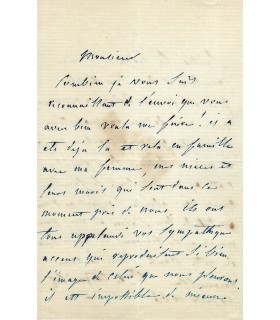 Monsieur
Combien je vous suis
reconnaissant de l'envoi que vous
avez bien voulu me faire! il a
été déjà lu et relu en famille
avec ma femme, mes nièces et
leurs maris qui sont dans ce
moment près de nous. ils ont
tous applaudi vos sympathiques
accents qui reproduisent si bien
l'image de celui que nous pleurons
il est impossible de mieux